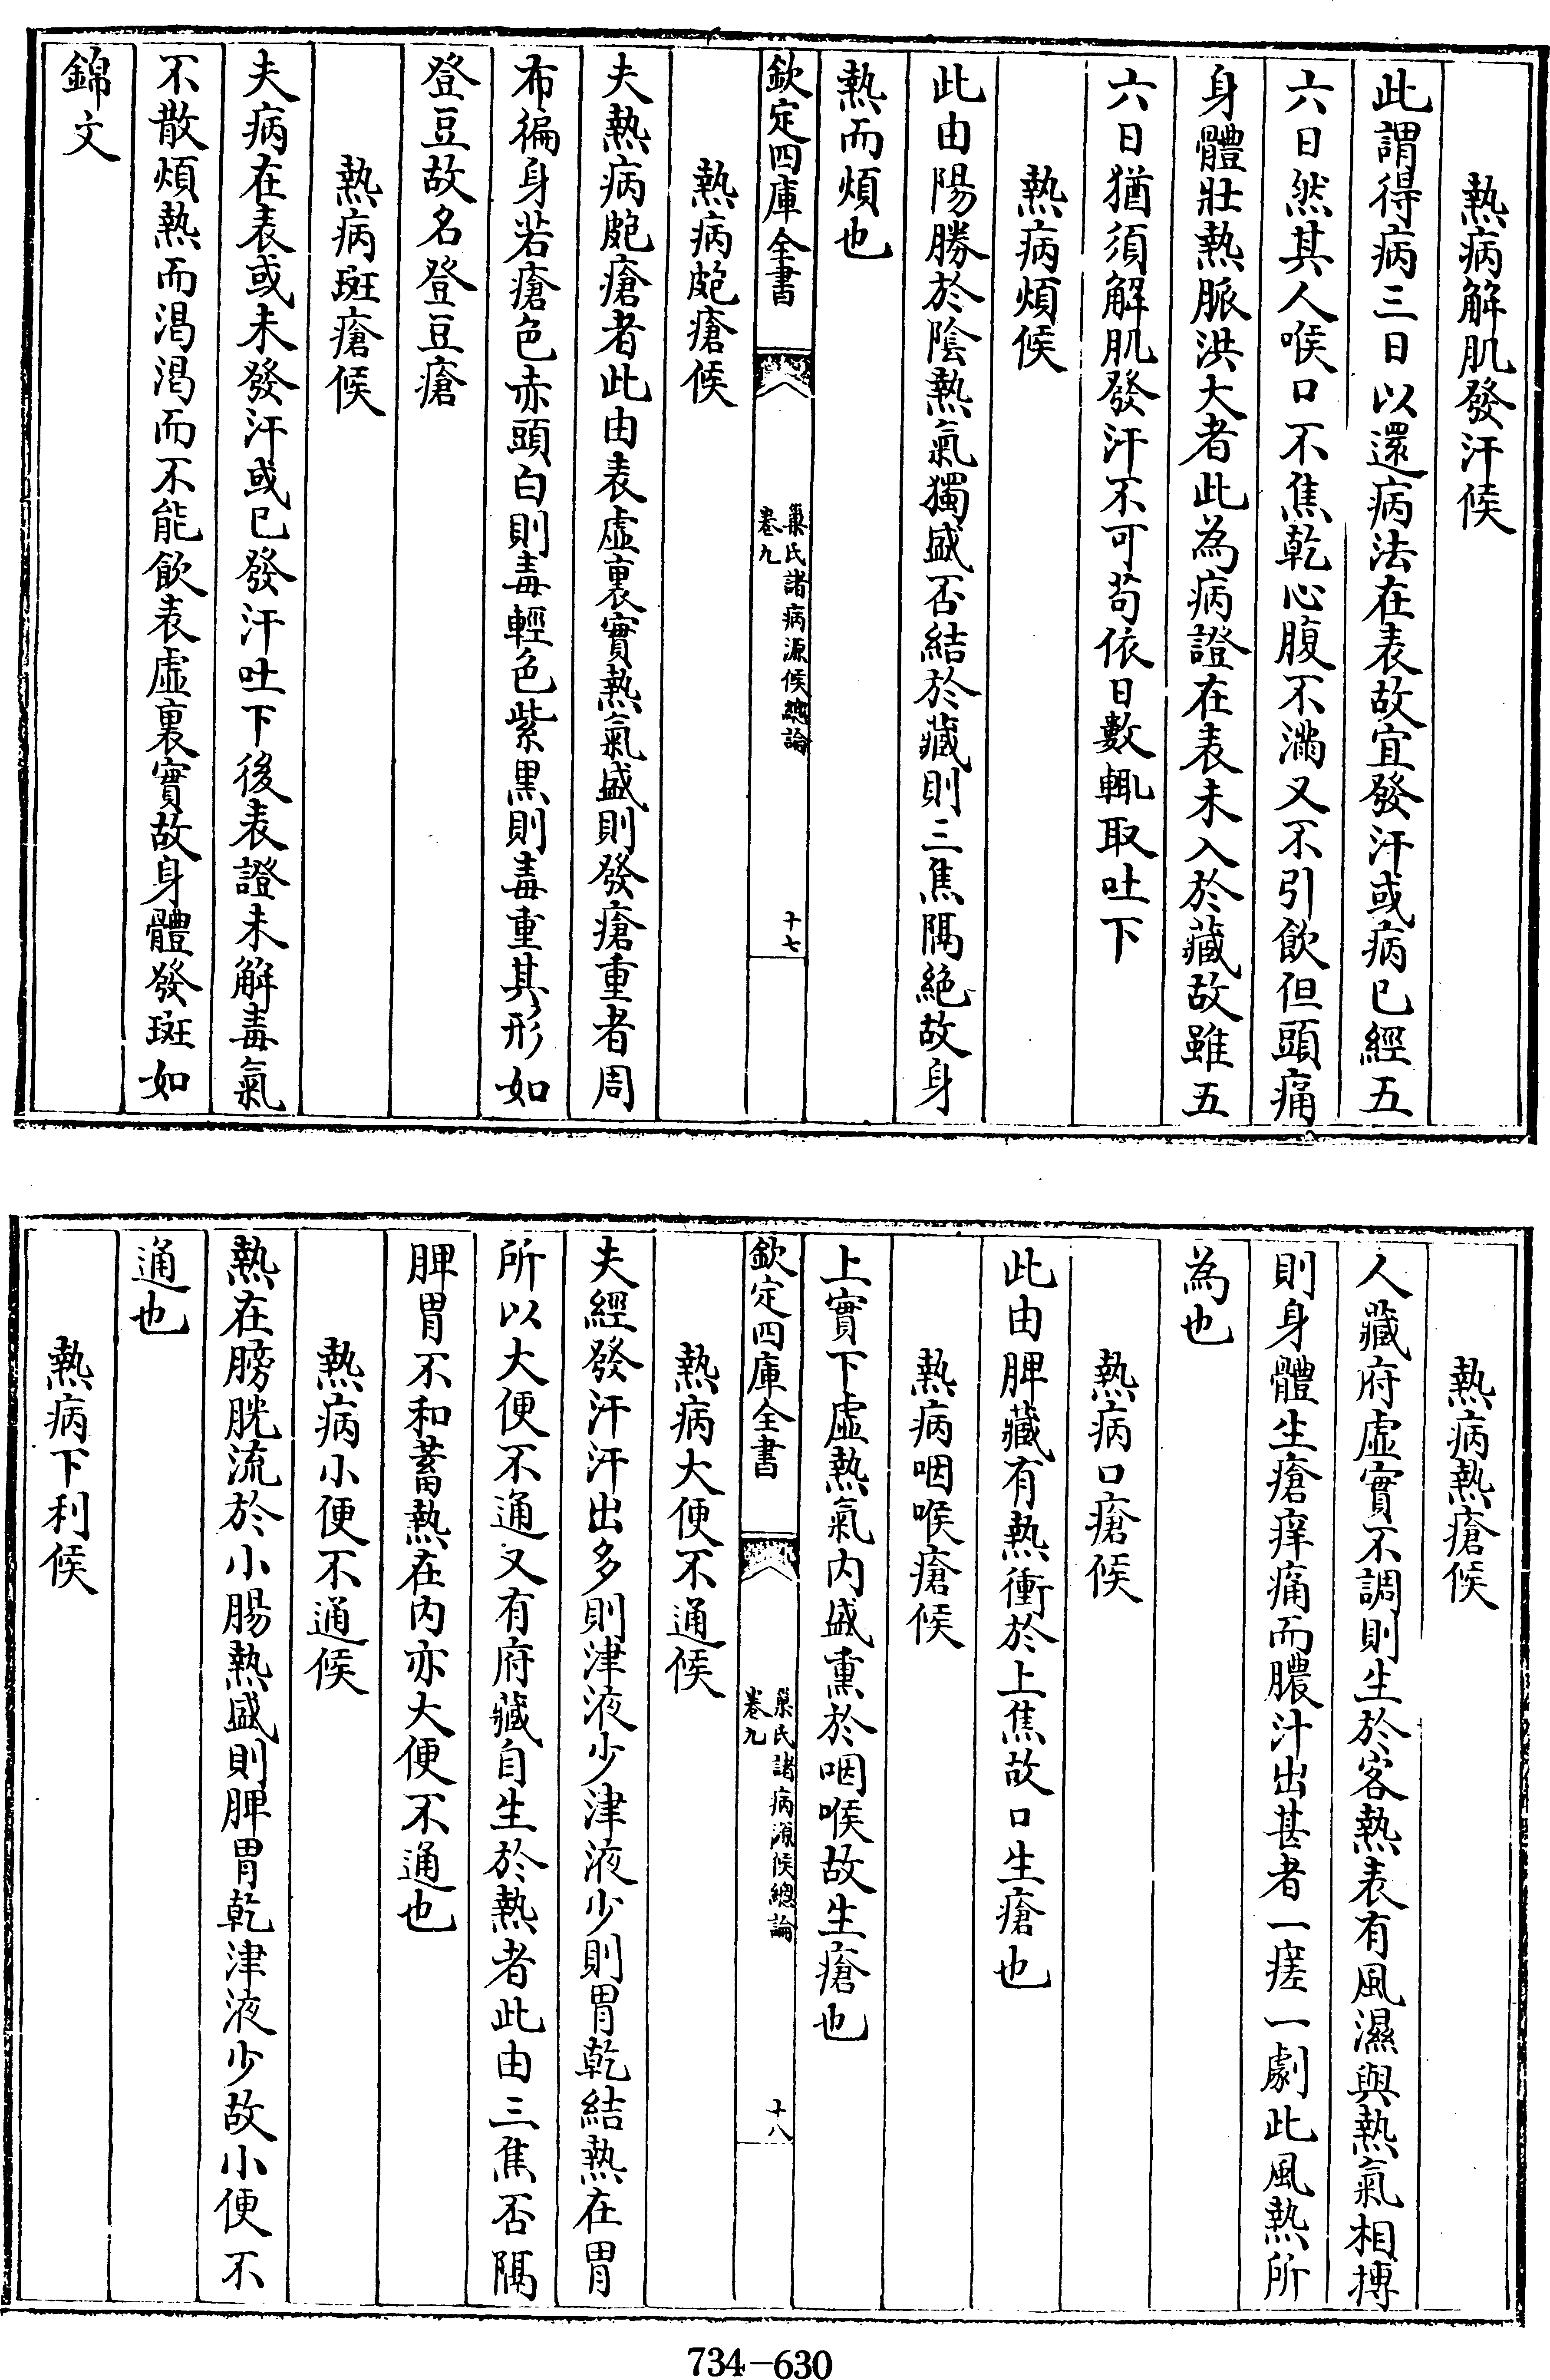 熱病解肌發汗候
此謂得病三日以還病法在表故宜發汗或病已經五
六日然其人喉口不焦乾心腹不滿又不引飲但頭痛
身體壯熱脈洪大者此為病證在表未入於藏故雖五
六日猶須解肌發汗不可苟依日數輒取吐下
熱病煩候
此由陽勝於陰熱氣獨盛否結於藏則三焦隔絕故身
熱而煩也
欽定四庫全書
巢氏諸病源候總論
卷九
十七
熱病皰瘡候
夫熱病皰瘡者此由表虛裏實熱氣盛則發瘡重者周
布徧身若瘡色赤頭白則毒輕色紫黑則毒重其形如
登豆故名登豆瘡
熱病斑瘡候
夫病在表或未發汗或已發汗吐下後表證未解毒氣
不散煩熱而渴渴而不能飲表虛裏實故身體發斑如
錦文
熱病熱瘡候
人藏府虛實不調則生於客熱表有風濕與熱氣相摶
則身體生瘡痒痛而膿汁出甚者一瘥一劇此風熱所
為也
熱病口瘡候
此由脾藏有熱衝於上焦故口生瘡也
熱病咽喉瘡候
上實下虛熱氣内盛熏於咽喉故生瘡也
欽定四庫全書
巢氏諸病源候總論
卷九
十八
熱病大便不通候
夫經發汗汗出多則津液少津液少則胃乾結熱在胃
所以大便不通又有府藏自生於熱者此由三焦否隔
脾胃不和蓄熱在内亦大便不通也
熱病小便不通候
熱在膀胱流於小腸熱盛則脾胃乾津液少故小便不
通也
熱病下利候
734-630